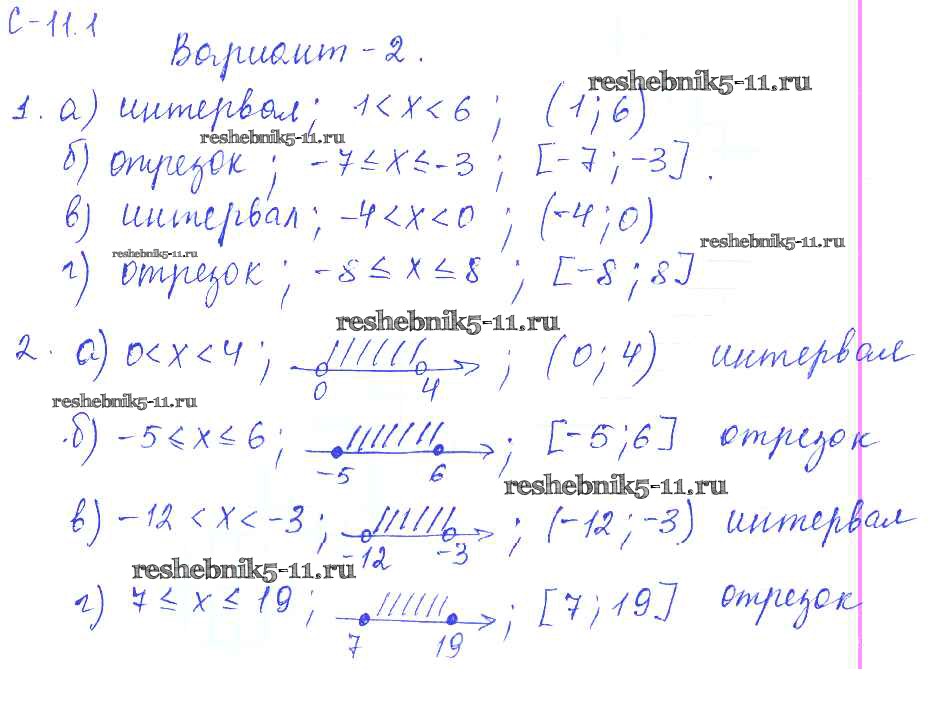 С-11.1
Вариант-2.
reshebnik5-11.ru
1. а) интервал; 1 < x < 6 ; (1; 6)
reshebnik5-11.ru
б) отрезок ; -7 ≤ x ≤ -3 ; [-7 ; -3] .
в) интервал; -4 < x < 0 ; (-4; 0)
reshebnik5-11.ru
reshebnik5-11.ru
г) отрезок ; -8 ≤ x ≤ 8 ; [-8 ; 8]
reshebnik5-11.ru
2. а) 0 < x < 4 ; 0 4 ; (0; 4) интервал
reshebnik5-11.ru
б) -5 ≤ x ≤ 6 ; -5 6 ; [-5 ; 6] отрезок
reshebnik5-11.ru
в) -12 < x < -3 ; -12 -3 ; (-12 ; -3) интервал
reshebnik5-11.ru
г) 7 ≤ x ≤ 19 ; 7 19 ; [7 ; 19] отрезок